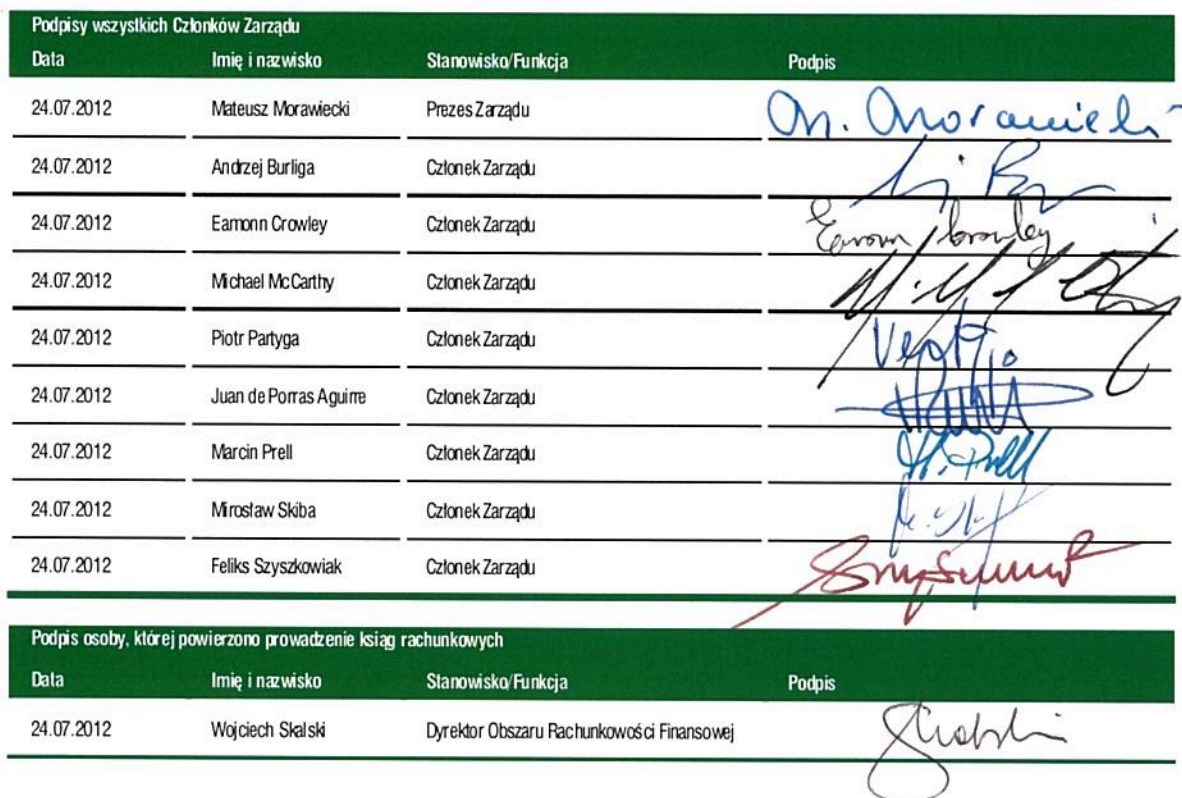 Podpisy wszystkich Członków Zarządu
Data Imię i nazwisko Stanowisko/Funkcja Podpis
24.07.2012 Mateusz Morawiecki Prezes Zarządu M. Morawiecki
24.07.2012 Andrzej Burliga Członek Zarządu
24.07.2012 Eamonn Crowley Członek Zarządu Eamonn Crowley
24.07.2012 Michael McCarthy Członek Zarządu
24.07.2012 Piotr Partyga Członek Zarządu
24.07.2012 Juan de Porras Aguirre Członek Zarządu
24.07.2012 Marcin Prell Członek Zarządu M. Prell
24.07.2012 Mirosław Skiba Członek Zarządu
24.07.2012 Feliks Szyszkowiak Członek Zarządu
Podpis osoby, której powierzono prowadzenie ksiąg rachunkowych
Data Imię i nazwisko Stanowisko/Funkcja Podpis
24.07.2012 Wojciech Skalski Dyrektor Obszaru Rachunkowości Finansowej Skalski